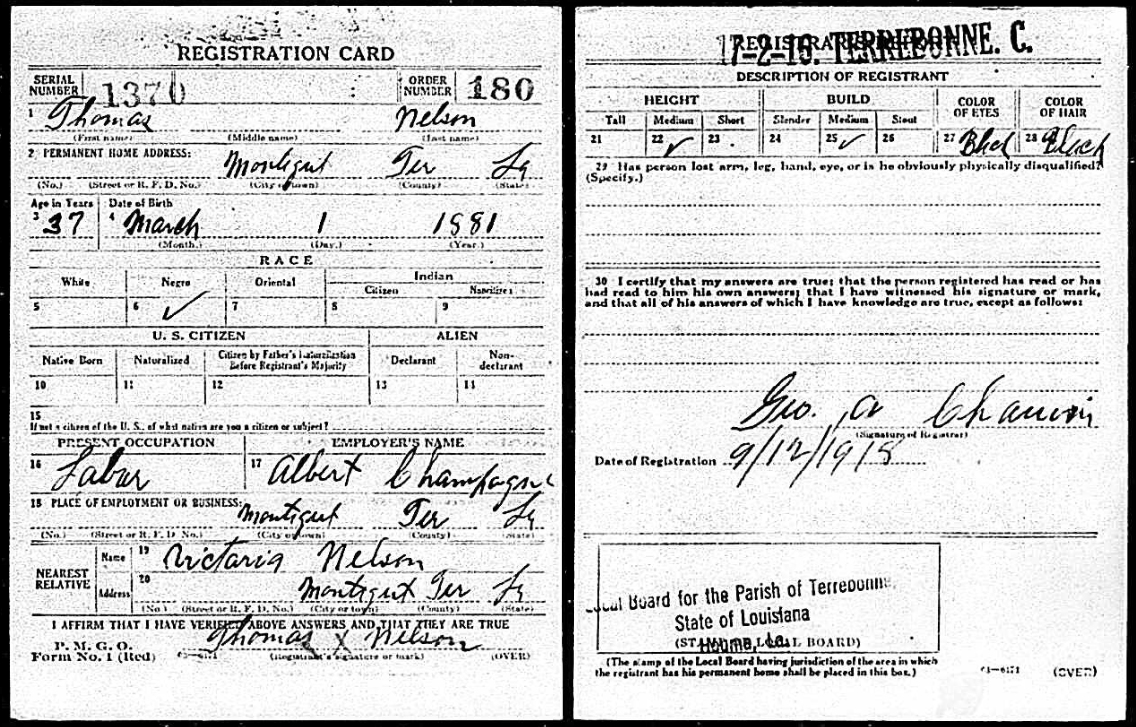 REGISTRATION CARD
SERIAL NUMBER 1370 ORDER NUMBER 180
1 Thomas Nelson
(First name) (Middle name) (Last name)
2 PERMANENT HOME ADDRESS: Montegut Ter La
(No.) (Street or R. F. D. No.) (City or town) (County) (State)
Age in Years Date of Birth
3 37 4 March 1 1881
(Month.) (Day.) (Year.)
RACE
White Negro Oriental Indian
Citizen Noncitizen
5 6 ✓ 7 8 9
U. S. CITIZEN ALIEN
Native Born Naturalized Citizen by Father's Naturalization Before Registrant's Majority Declarant Non-declarant
10 11 12 13 14
15
If not a citizen of the U. S., of what nation are you a citizen or subject?
PRESENT OCCUPATION EMPLOYER'S NAME
16 Labar 17 Albert Champagne
18 PLACE OF EMPLOYMENT OR BUSINESS: Montegut Ter La
(No.) (Street or R. F. D. No.) (City or town) (County) (State)
NEAREST RELATIVE
Name 19 Victoria Nelson
Address 20 Montegut Ter La
(No.) (Street or R. F. D. No.) (City or town) (County) (State)
I AFFIRM THAT I HAVE VERIFIED ABOVE ANSWERS AND THAT THEY ARE TRUE
P. M. G. O.
Form No. 1 (Red)
Thomas X Nelson
(Registrant's signature or mark) (OVER)
REGISTRAR
17-2-16. TERREBONNE. C.
DESCRIPTION OF REGISTRANT
HEIGHT BUILD COLOR OF EYES COLOR OF HAIR
Tall Medium Short Slender Medium Stout
21 22 ✓ 23 24 25 ✓ 26 27 Blck 28 Black
29 Has person lost arm, leg, hand, eye, or is he obviously physically disqualified?
(Specify.)
30 I certify that my answers are true; that the person registered has read or has
had read to him his own answers; that I have witnessed his signature or mark,
and that all of his answers of which I have knowledge are true, except as follows:
Geo. a Chauvin
(Signature of Registrar)
Date of Registration 9/12/1918
Local Board for the Parish of Terrebonne,
State of Louisiana
Houma, La.
(STAMP OF LOCAL BOARD)
(The stamp of the Local Board having jurisdiction of the area in which
the registrant has his permanent home shall be placed in this box.)
(OVER)